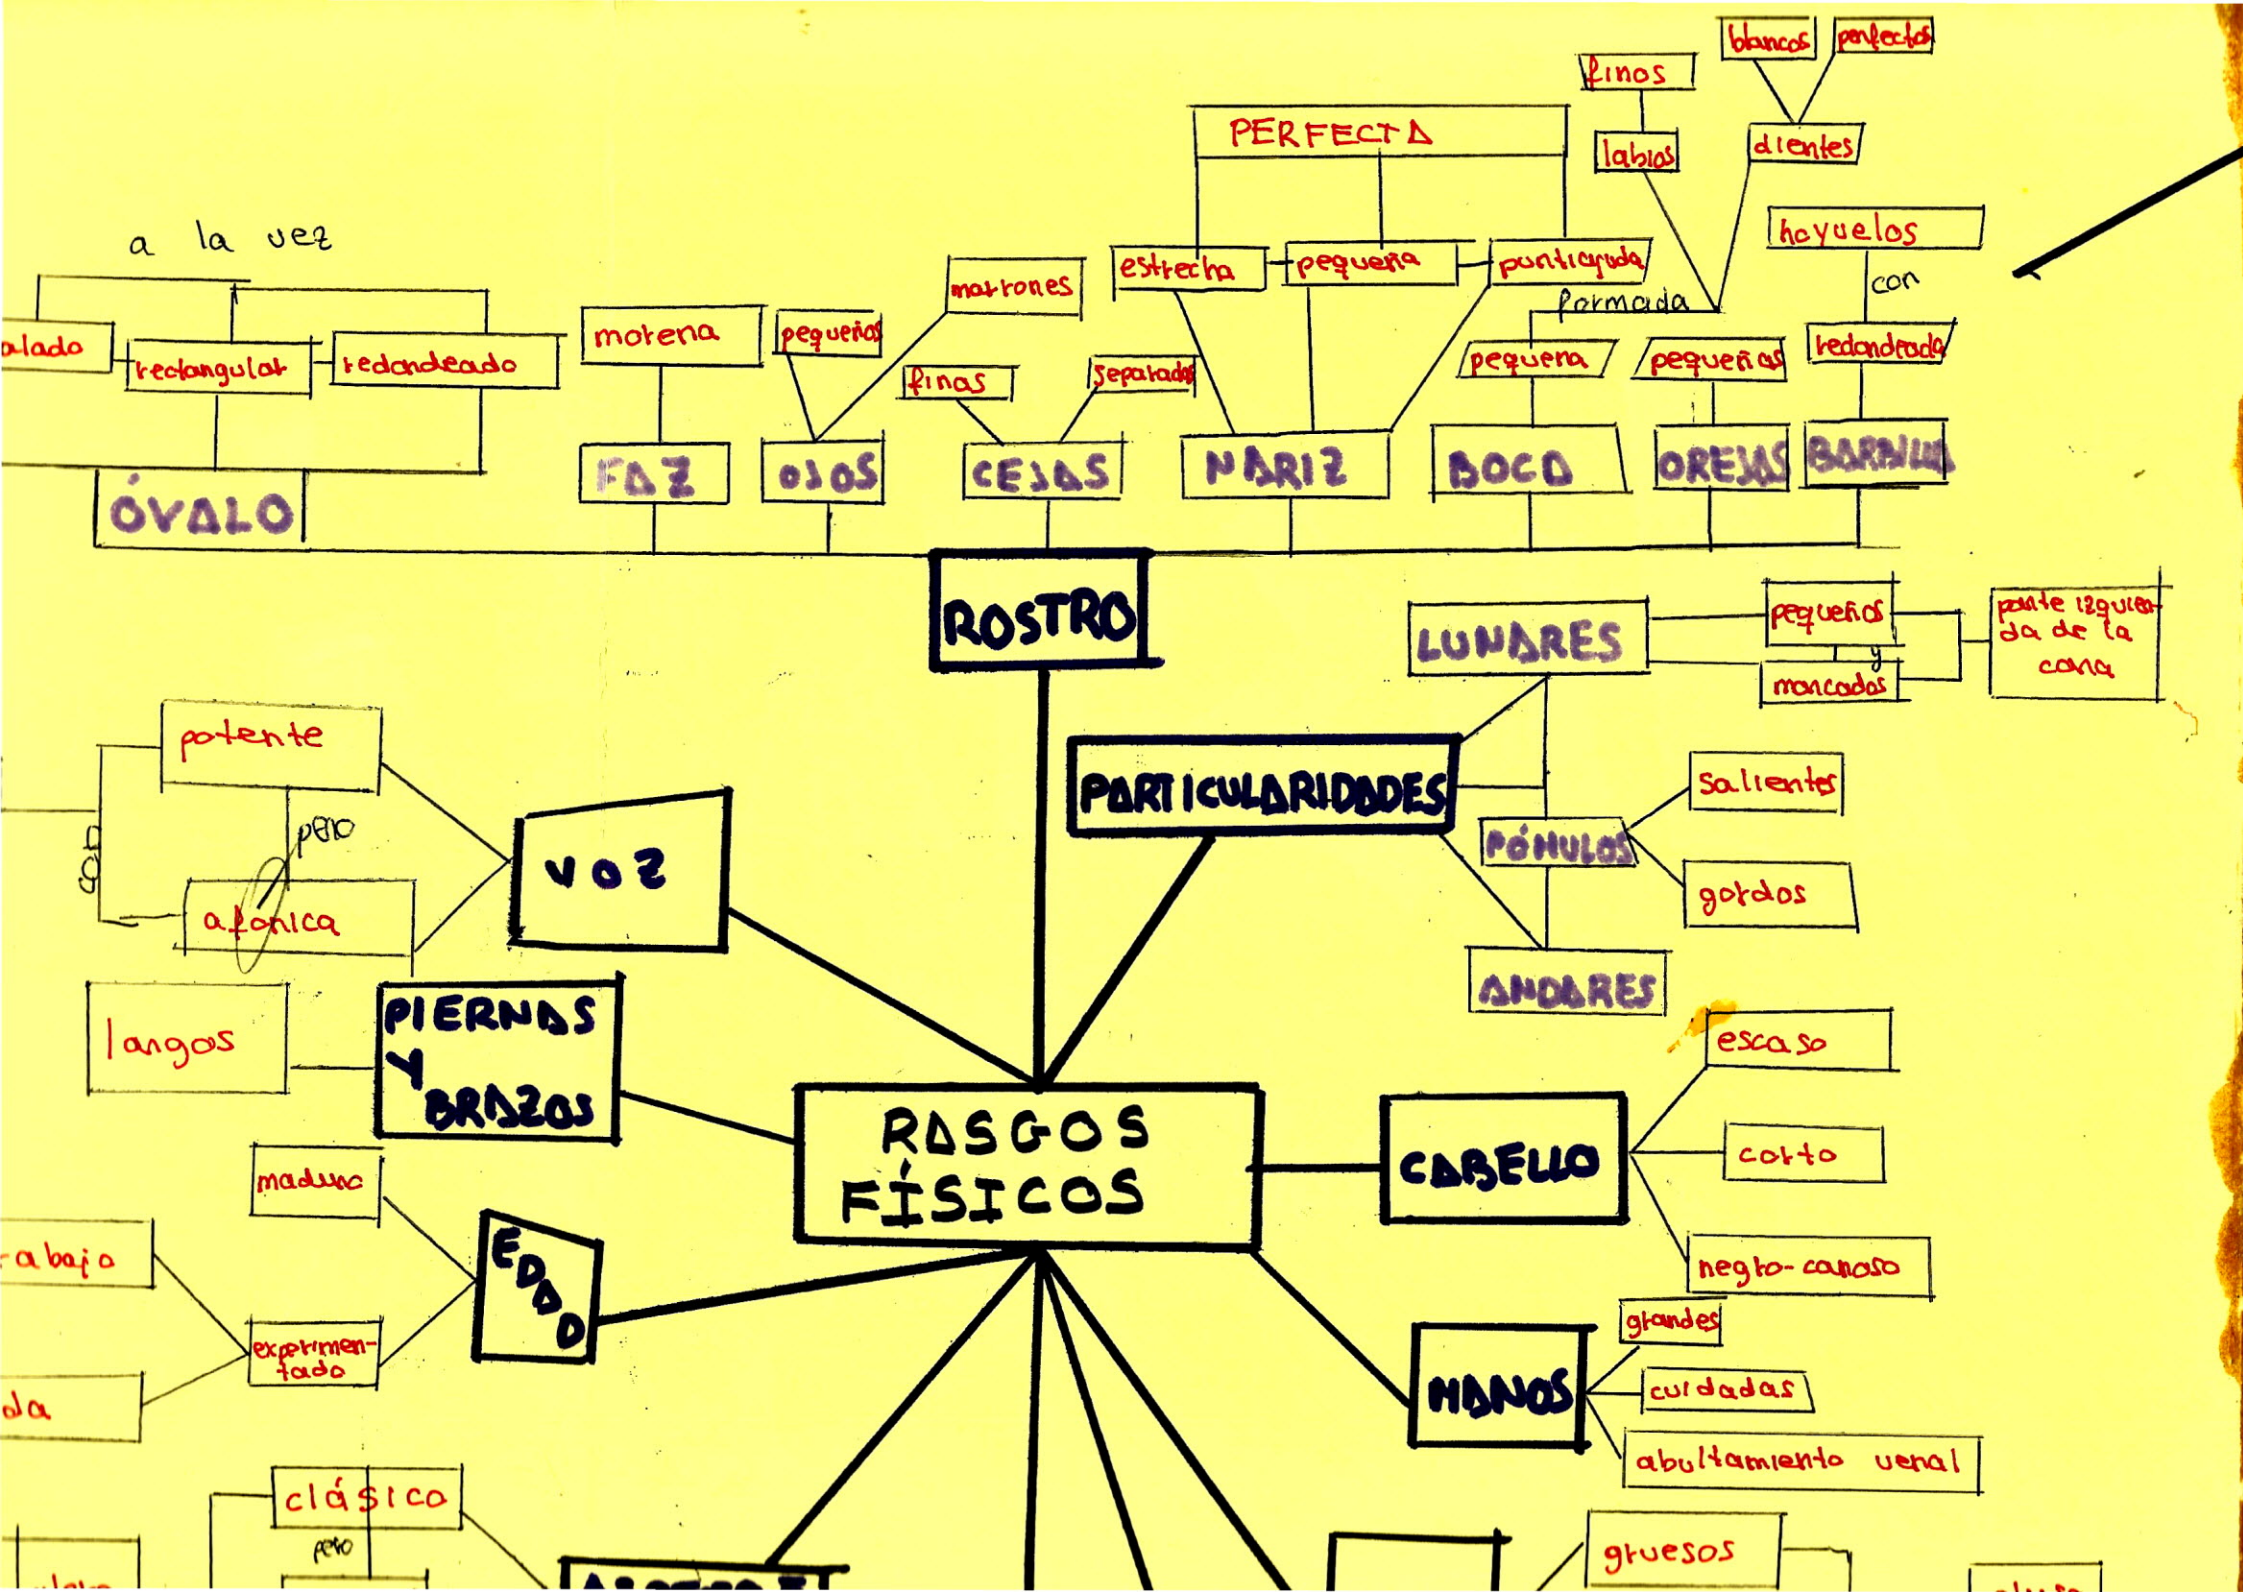 blancos
perfectos
finos
PERFECTA
labios
dientes
hoyuelos
a la vez
con
estrecha
pequeña
puntiaguda
marrones
formada
alado
rectangular
redondeado
morena
pequeños
finas
separadas
pequena
pequeñas
redondeada
ÓVALO
FAZ
OJOS
CEJAS
NARIZ
BOCA
OREJAS
BARBILLA
ROSTRO
LUNARES
pequeños
y
marcados
parte izquier-
da de la
cara
potente
pero
con
afonica
VOZ
PARTICULARIDADES
PÓMULOS
salientes
gordos
ANDARES
largos
PIERNAS
Y
BRAZOS
RASGOS
FÍSICOS
CABELLO
escaso
corto
negro-canoso
madura
EDAD
abajo
experimen-
tado
da
MANOS
grandes
cuidadas
abultamiento venal
clásico
pero
gruesos